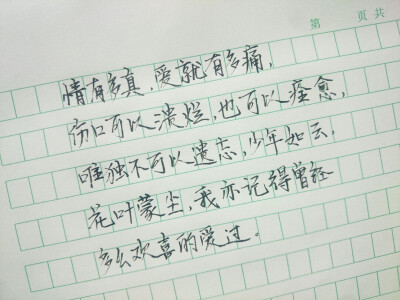 第 页 共
情有多真，爱就有多痛，
伤口可以溃烂，也可以痊愈，
唯独不可以遗忘，少年如云，
花叶蒙尘，我亦记得曾经
多么欢喜的爱过。